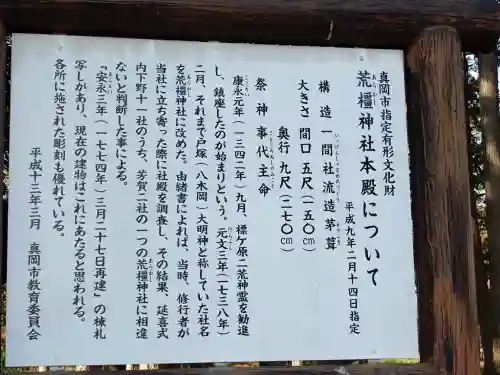 真岡市指定有形文化財
荒橿神社本殿について
あらかし
平成九年二月十四日指定
構造 一間社流造茅葺
いっけんしゃながれづくりかやぶき
大きさ 間口 五尺(一五〇cm)
奥行 九尺(二七〇cm)
祭神 事代主命
ことしろぬしのみこと
康永元年(一三四二年)九月、標ケ原二荒神霊を勧進
し、鎮座したのが始まりという。元文三年(一七三八年)
二月、それまで戸塚(八木岡)大明神と称していた社名
を荒橿神社に改めた。由緒書によれば、当時、修行者が
当社に立ち寄った際に社殿を調査し、その結果、延喜式
内下野十一社のうち、芳賀二社の一つの荒橿神社に相違
ないと判断した事による。
「安永三年(一七七四年)三月二十七日再建」の棟札
写しがあり、現在の建物はこれにあたると思われる。
各所に施された彫刻も優れている。
平成十三年三月 真岡市教育委員会